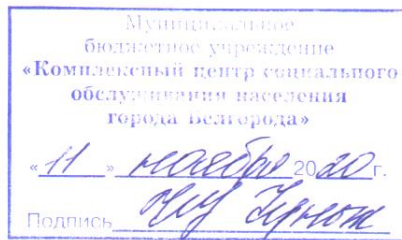 Муниципальное
бюджетное учреждение
«Комплексный центр социального
обслуживания населения
города Белгорода»
«11» ноября 2020г.
Подпись